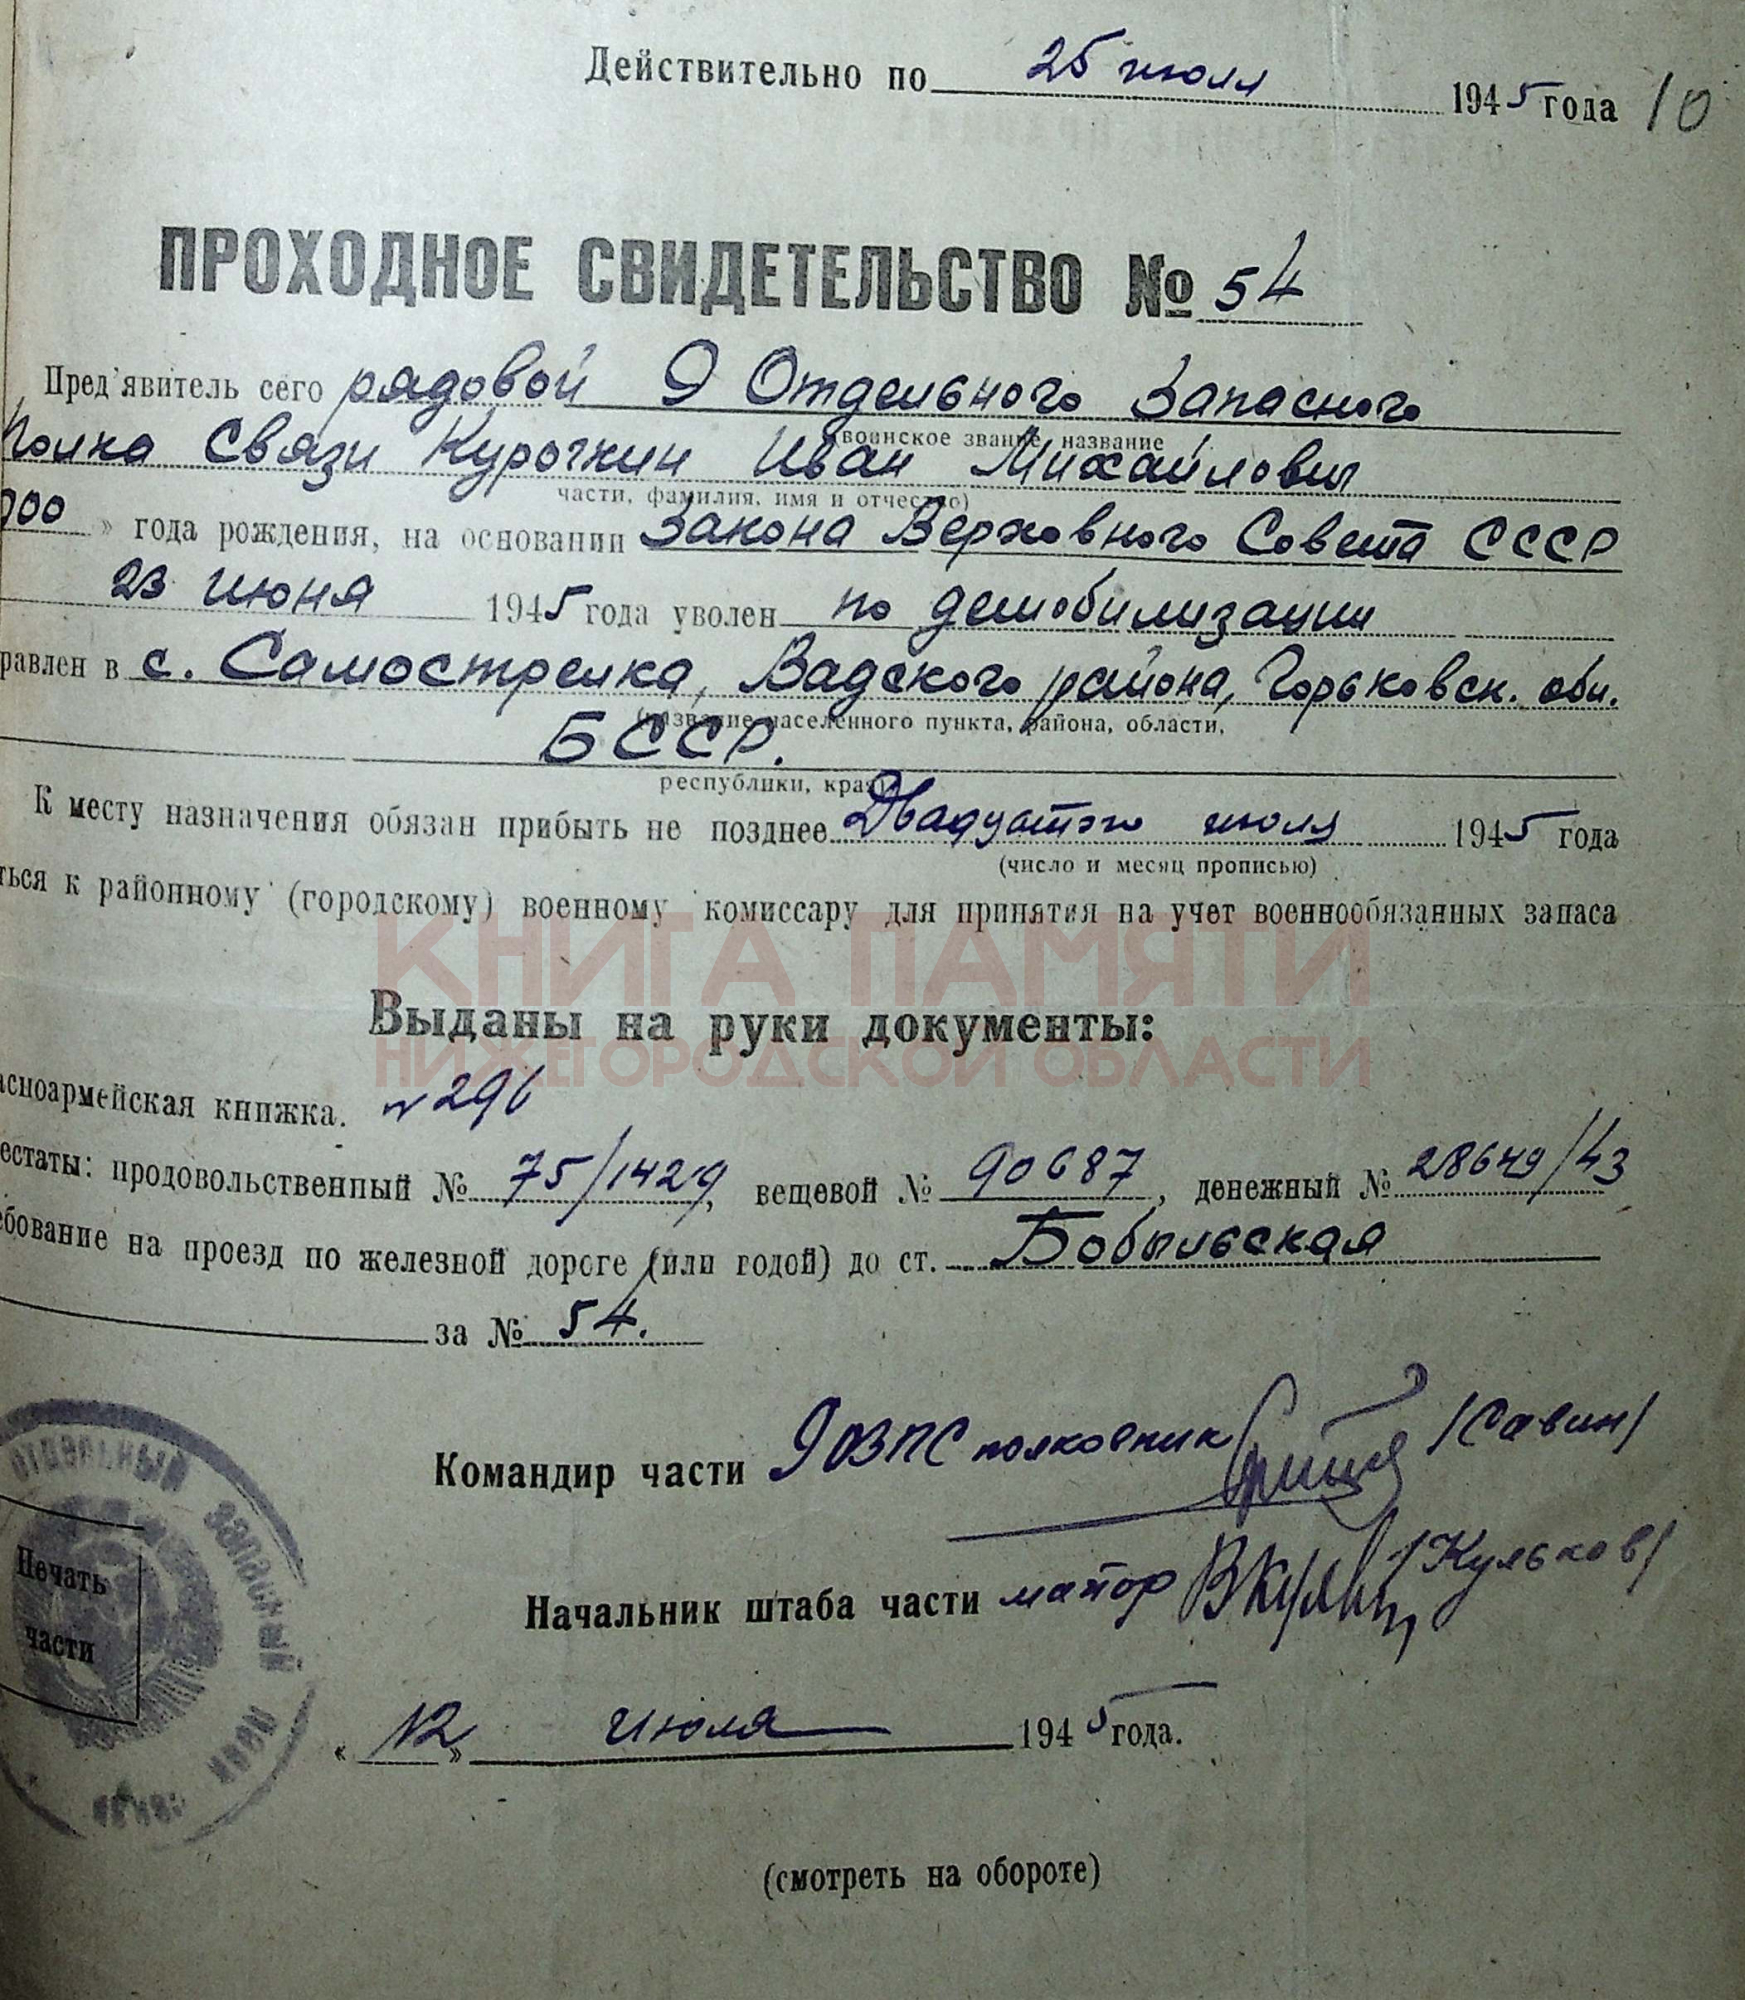 Действительно по 25 июля 1945 года 10
ПРОХОДНОЕ СВИДЕТЕЛЬСТВО № 54
Пред'явитель сего рядовой 9 Отдельного Запасного
(воинское звание, название
Полка Связи Курочкин Иван Михайлович
части, фамилия, имя и отчество)
900 » года рождения, на основании Закона Верховного Совета СССР
23 июня 1945 года уволен по демобилизации
равлен в с. Самострелка, Вадского района, Горьковск. обл.
(название населенного пункта, района, области,
БССР.
республики, края)
К месту назначения обязан прибыть не позднее Двадцатого июля 1945 года
(число и месяц прописью)
ться к районному (городскому) военному комиссару для принятия на учет военнообязанных запаса
КНИГА ПАМЯТИ
Выданы на руки документы:
НИЖЕГОРОДСКОЙ ОБЛАСТИ
асноармейская книжка. № 296
естаты: продовольственный № 75/1429, вещевой № 90687, денежный № 28649/43
ебование на проезд по железной дороге (или годой) до ст. Бобыльская
за № 54.
Командир части 9 ОЗПС полковник /Савин/
Начальник штаба части майор /Кульков/
Печать
части
ОТДЕЛЬНЫЙ ЗАПАСНЫЙ ПОЛК СВЯЗИ
« 12 » июля 1945 года.
(смотреть на обороте)